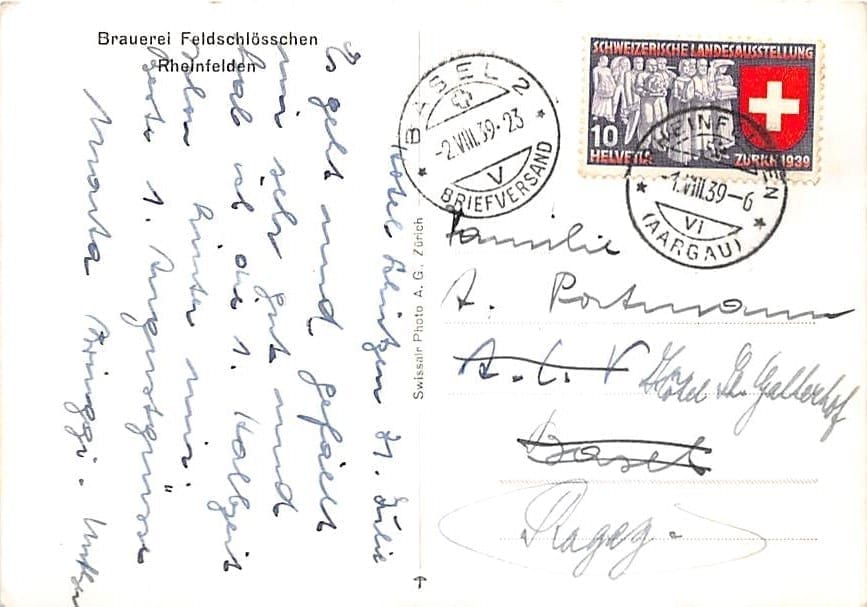 Brauerei Feldschlösschen
Rheinfelden
Hotel Schützen 31. Juli
Es geht und gefällt
mir sehr gut und
hab ich die 1. Halbzeit
schon hinter mir.
beste 1. Augustgrüsse
Marta
Swissair Photo A. G., Zürich
BASEL 2
-2.VIII.39-23
V
BRIEFVERSAND
SCHWEIZERISCHE LANDESAUSSTELLUNG
10
HELVETIA
ZÜRICH 1939
RHEINFELDEN
-1.VIII.39-6
VI
(AARGAU)
Familie
A. Portmann
Hotel St. Gallerhof
Basel
Ragaz.